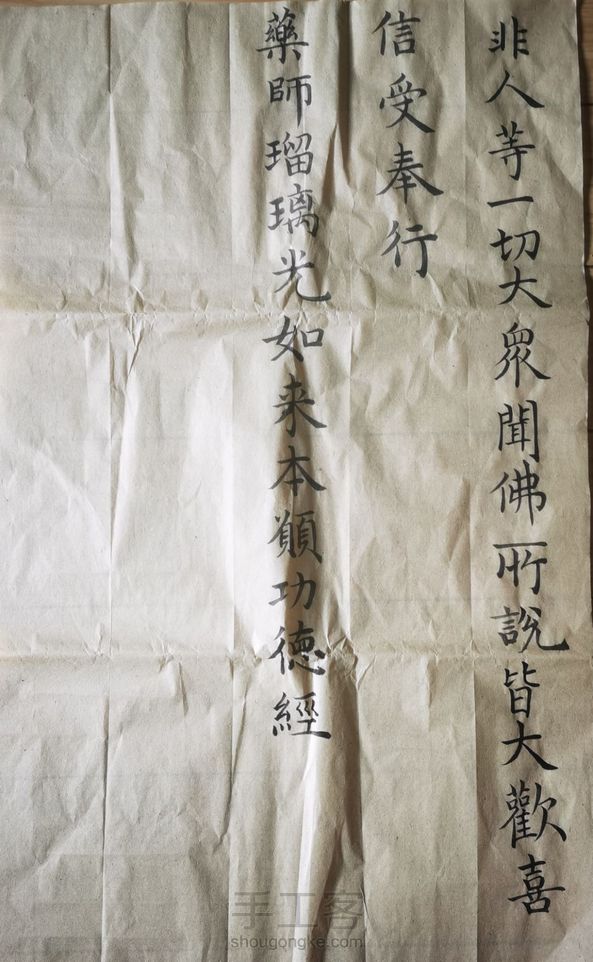 非人等一切大眾聞佛所說皆大歡喜
信受奉行
藥師瑠璃光如来本願功德經
手工客
shougongke.com